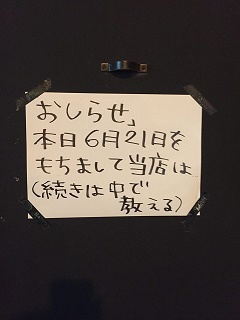 おしらせ」
本日6月21日を
もちまして当店は
(続きは中で
教える)